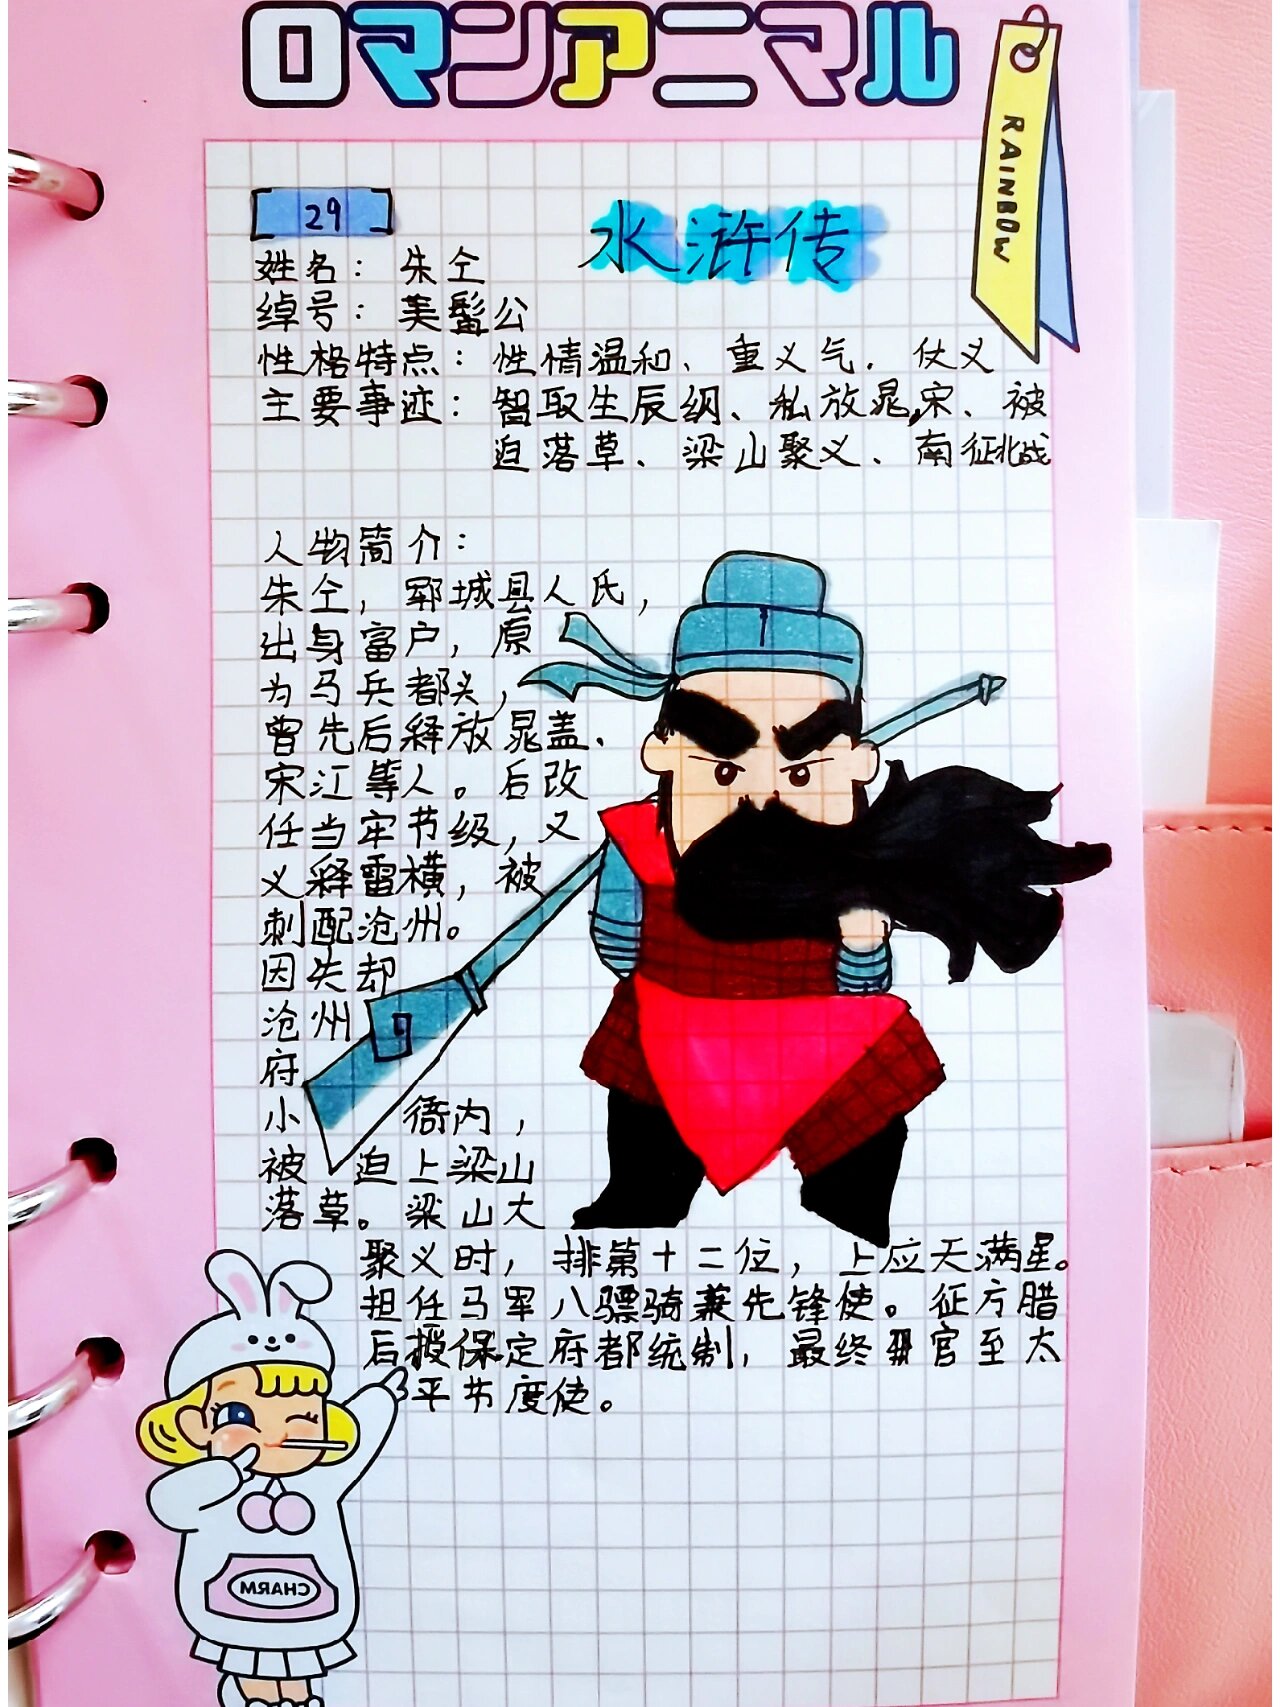 ロマンアニマル
RAINBOW
29
水浒传
姓名：朱仝
绰号：美髯公
性格特点：性情温和、重义气、仗义
主要事迹：智取生辰纲、私放晁,宋、被
迫落草、梁山聚义、南征北战
人物简介：
朱仝，郓城县人氏，
出身富户，原
为马兵都头，
曾先后释放晁盖、
宋江等人。后改
任当牢节级，又
义释雷横，被
刺配沧州。
因失却
沧州
府
小衙内，
被迫上梁山
落草。梁山大
聚义时，排第十二位，上应天满星。
担任马军八骠骑兼先锋使。征方腊
后授保定府都统制，最终官至太
平节度使。
CHARM